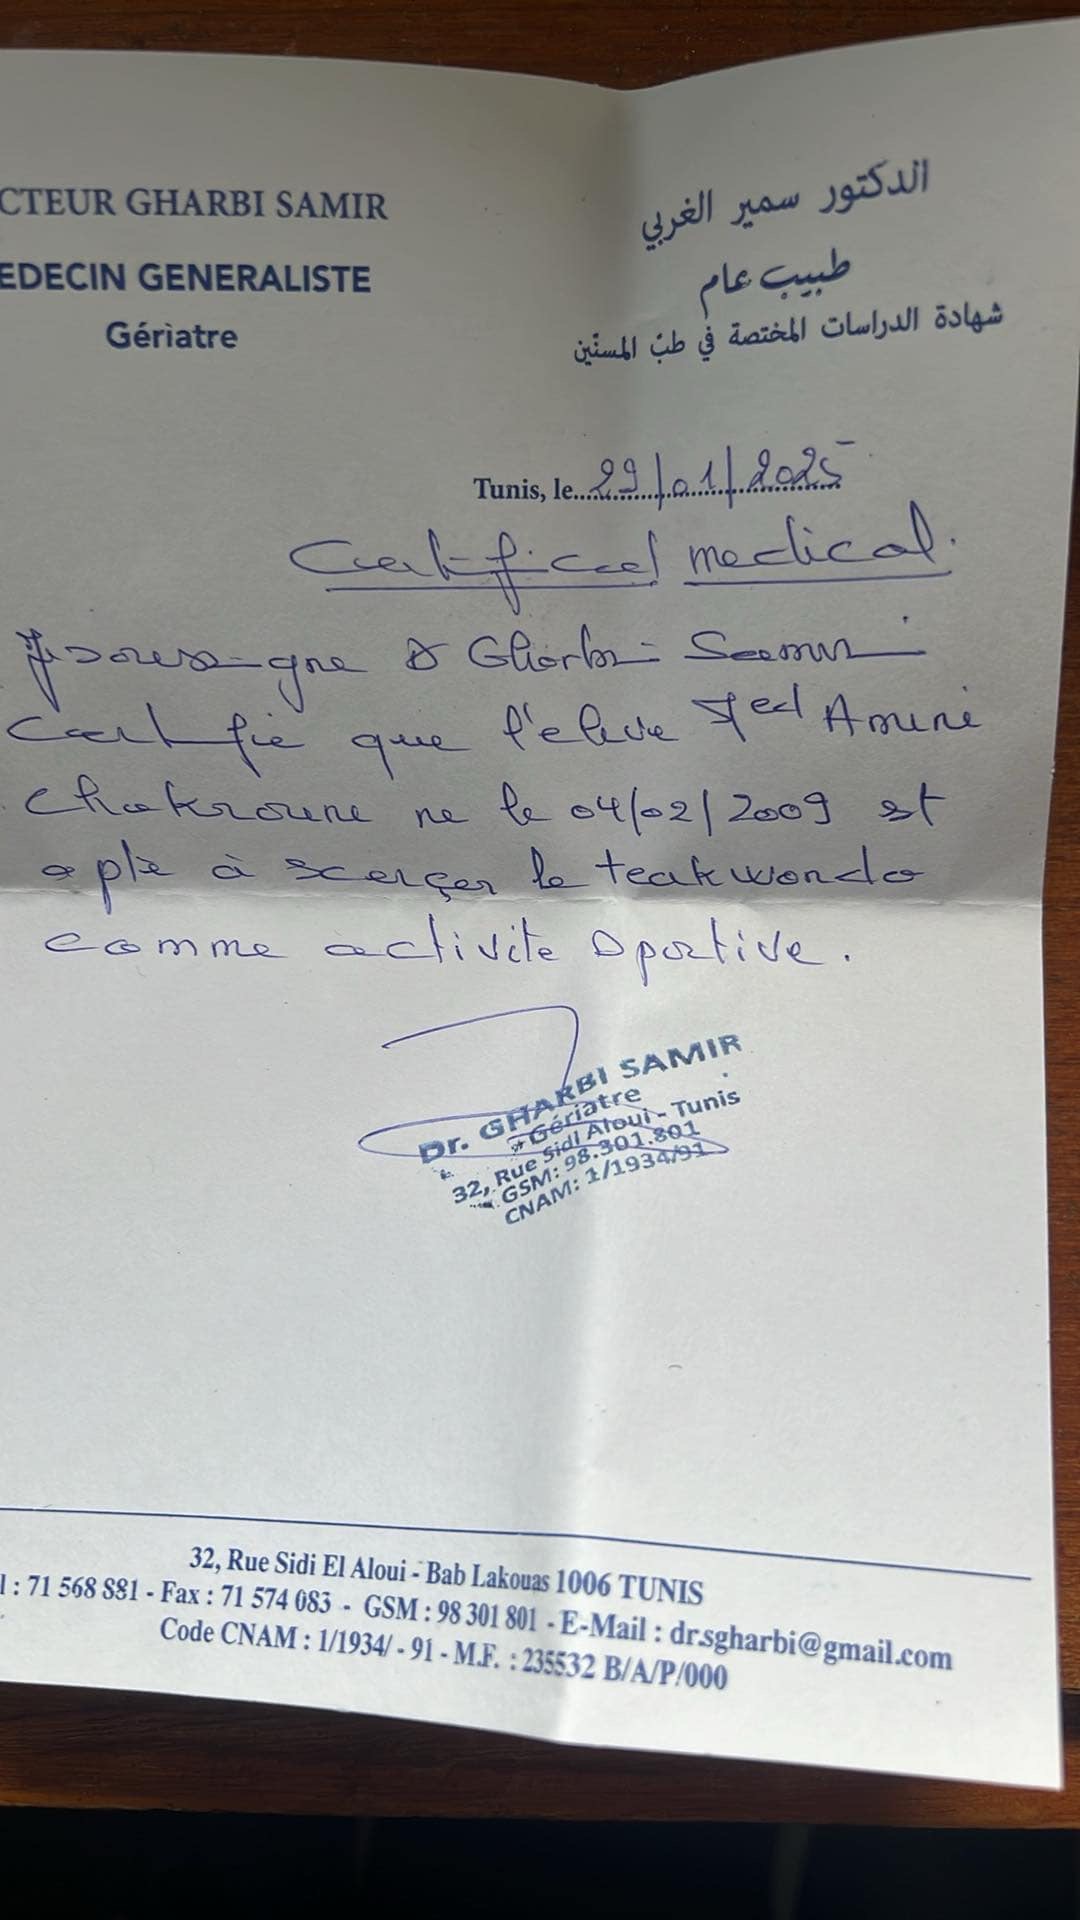 CTEUR GHARBI SAMIR
EDECIN GENERALISTE
Gériatre
الدكتور سمير الغربي
طبيب عام
شهادة الدراسات المختصة في طبّ المسنّين
Tunis, le 29/01/2025
Certificat medical.
Je soussigne Dr Gharbi Samir
Certifie que l'eleve Med Amine
Chakroune ne le 04/02/2009 est
apte à exerçer le teakwondo
comme activite sportive.
Dr. GHARBI SAMIR
Gériatre
32, Rue Sidi Aloui - Tunis
GSM: 98.301.801
CNAM: 1/1934/91
32, Rue Sidi El Aloui - Bab Lakouas 1006 TUNIS
l : 71 568 881 - Fax : 71 574 083 - GSM : 98 301 801 - E-Mail : dr.sgharbi@gmail.com
Code CNAM : 1/1934/ - 91 - M.F. : 235532 B/A/P/000